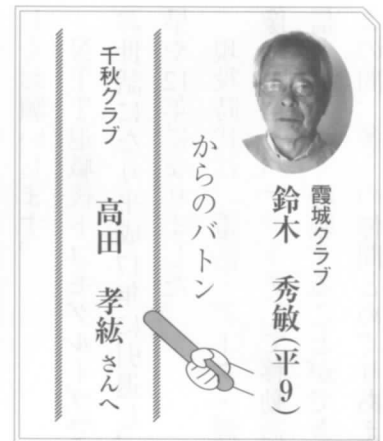 霞城クラブ
鈴木 秀敏(平9)
からのバトン
千秋クラブ
高田 孝紘さんへ